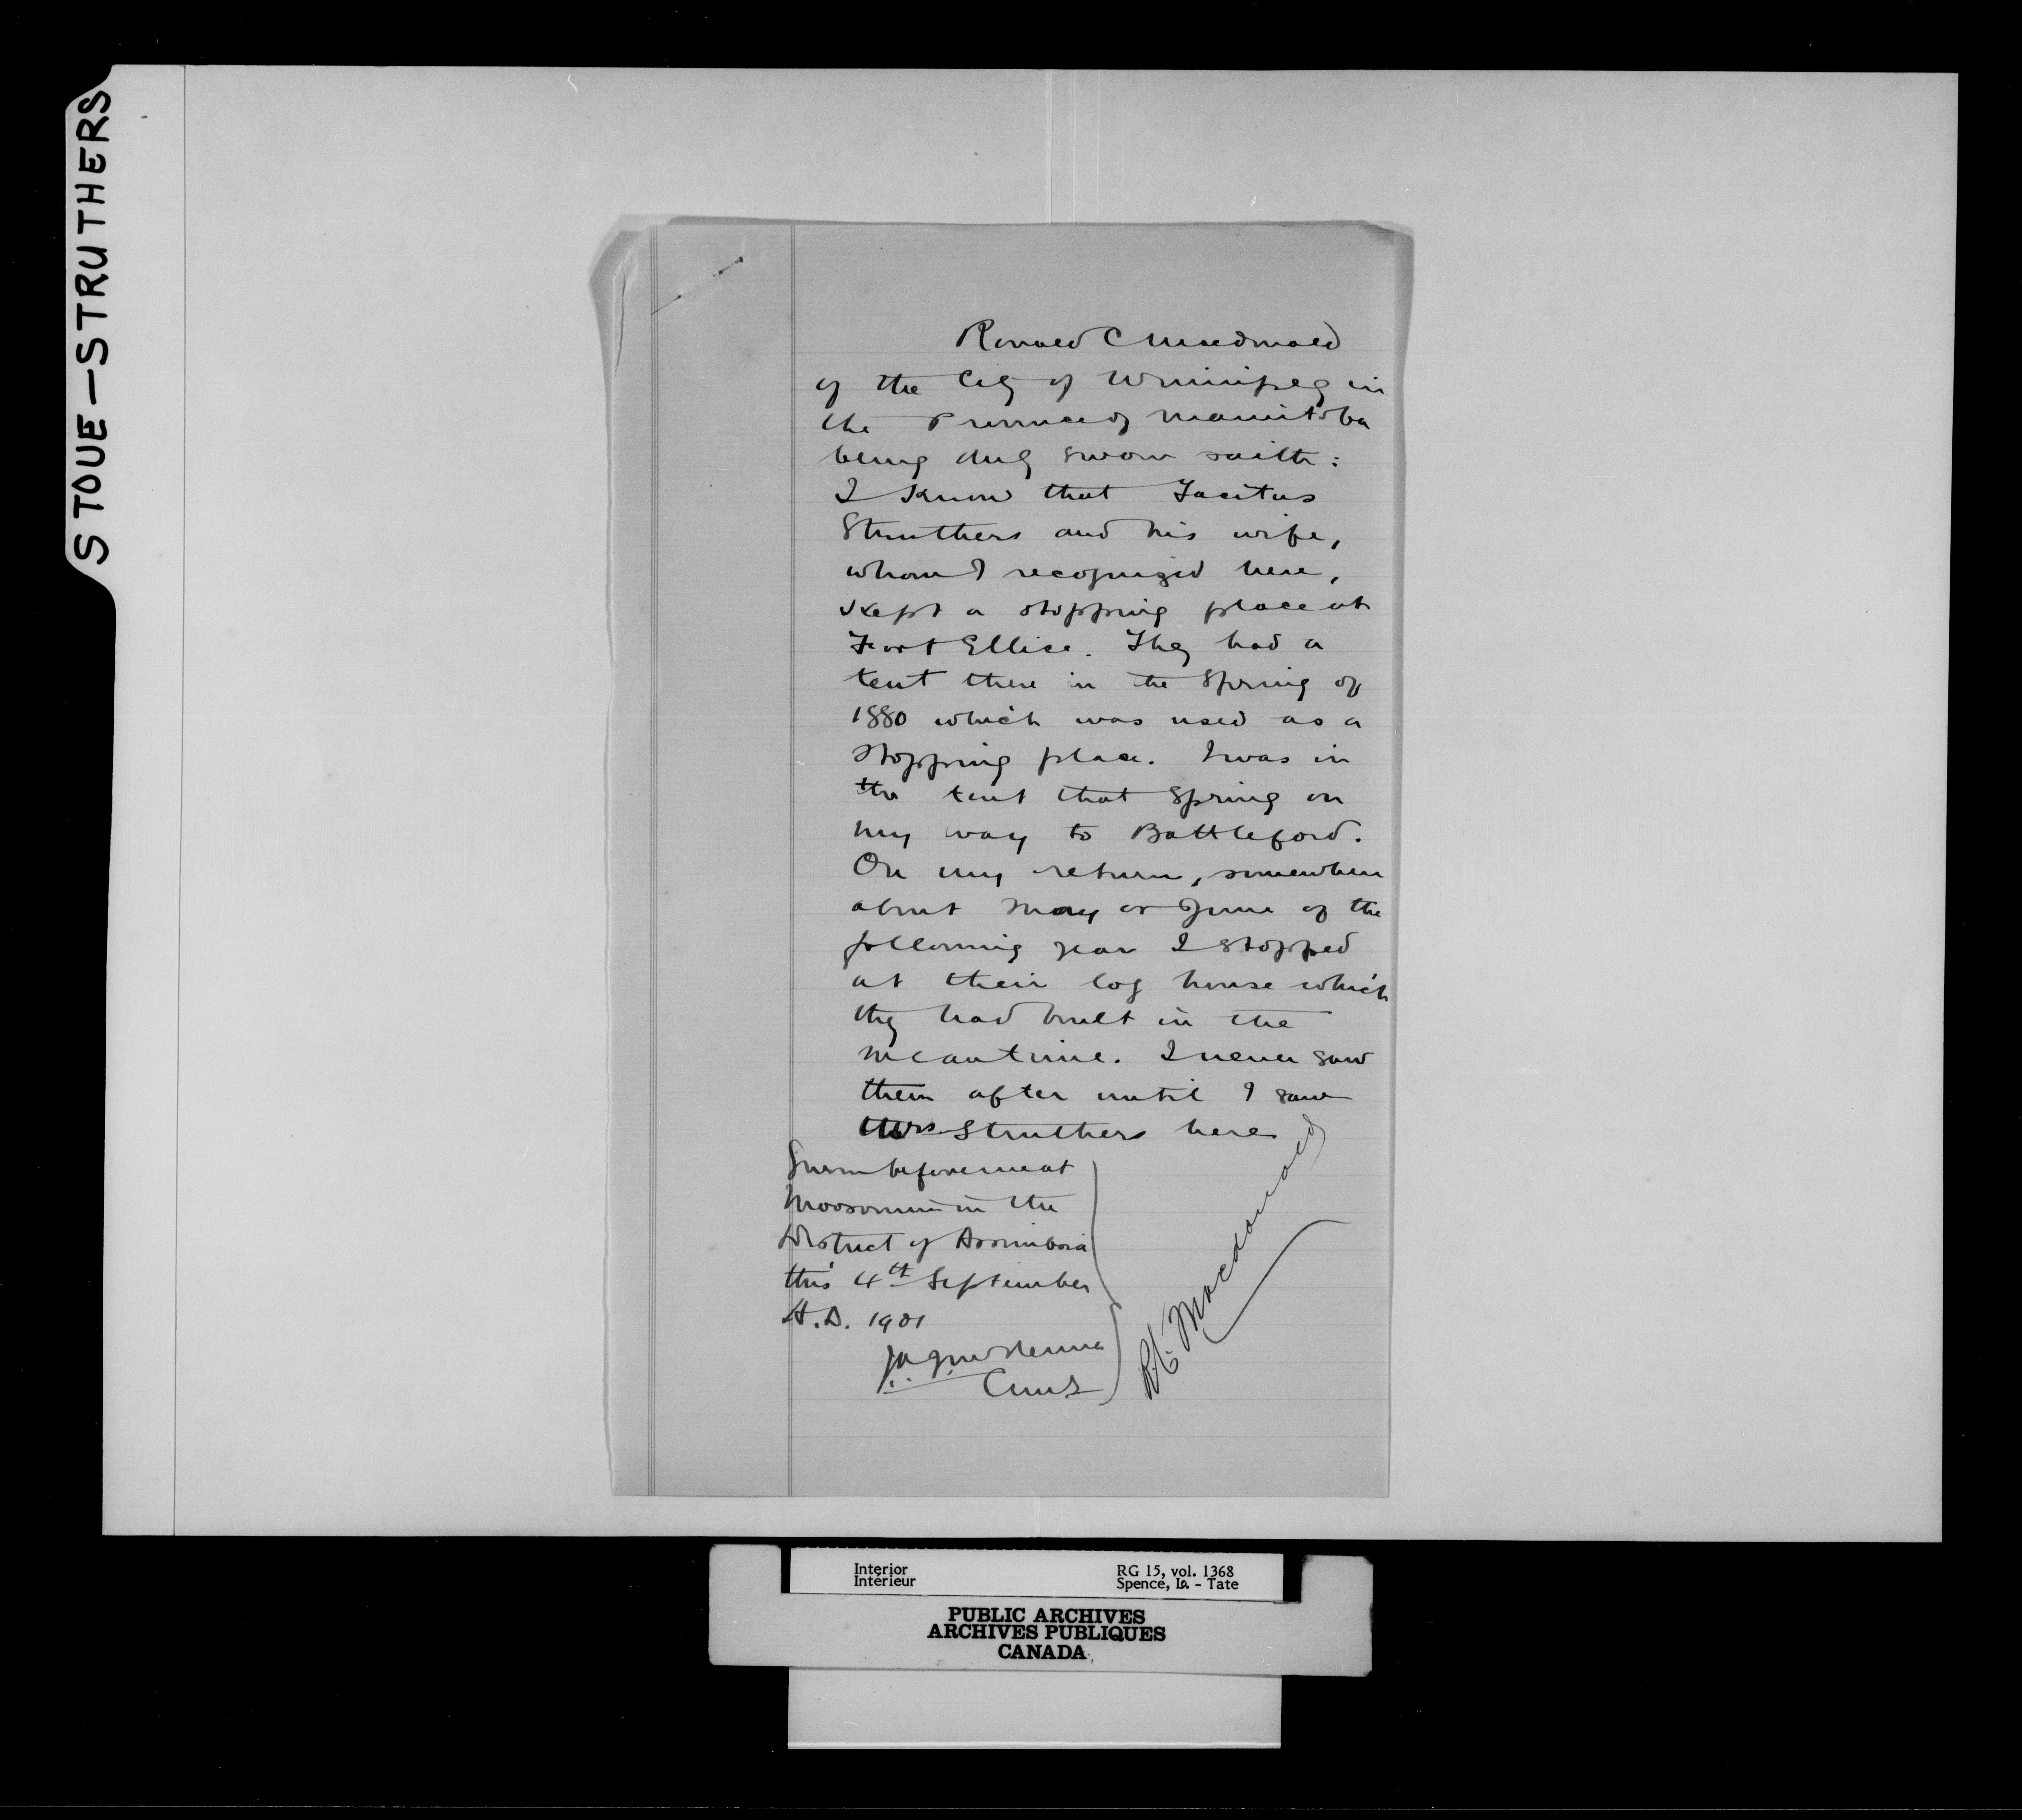 STOUE-STRUTHERS
Ronald C Macdonald
of the City of Winnipeg in
the Province of Manitoba
being duly sworn saith:
I know that Tacitus
Struthers and his wife,
whom I recognized here,
kept a stopping place at
Fort Ellice. They had a
tent there in the Spring of
1880 which was used as a
stopping place. I was in
the tent that Spring on
my way to Battleford.
On my return, somewhere
about May or June of the
following year I stopped
at their log house which
they had built in the
meantime. I never saw
them after until I saw
Mrs Struthers here
Sworn before me at
Moosomin in the
District of Assiniboia
this 4th September
A.D. 1901
R.C. Macdonald
Interior
Intérieur
RG 15, vol. 1368
Spence, Lo. - Tate
PUBLIC ARCHIVES
ARCHIVES PUBLIQUES
CANADA